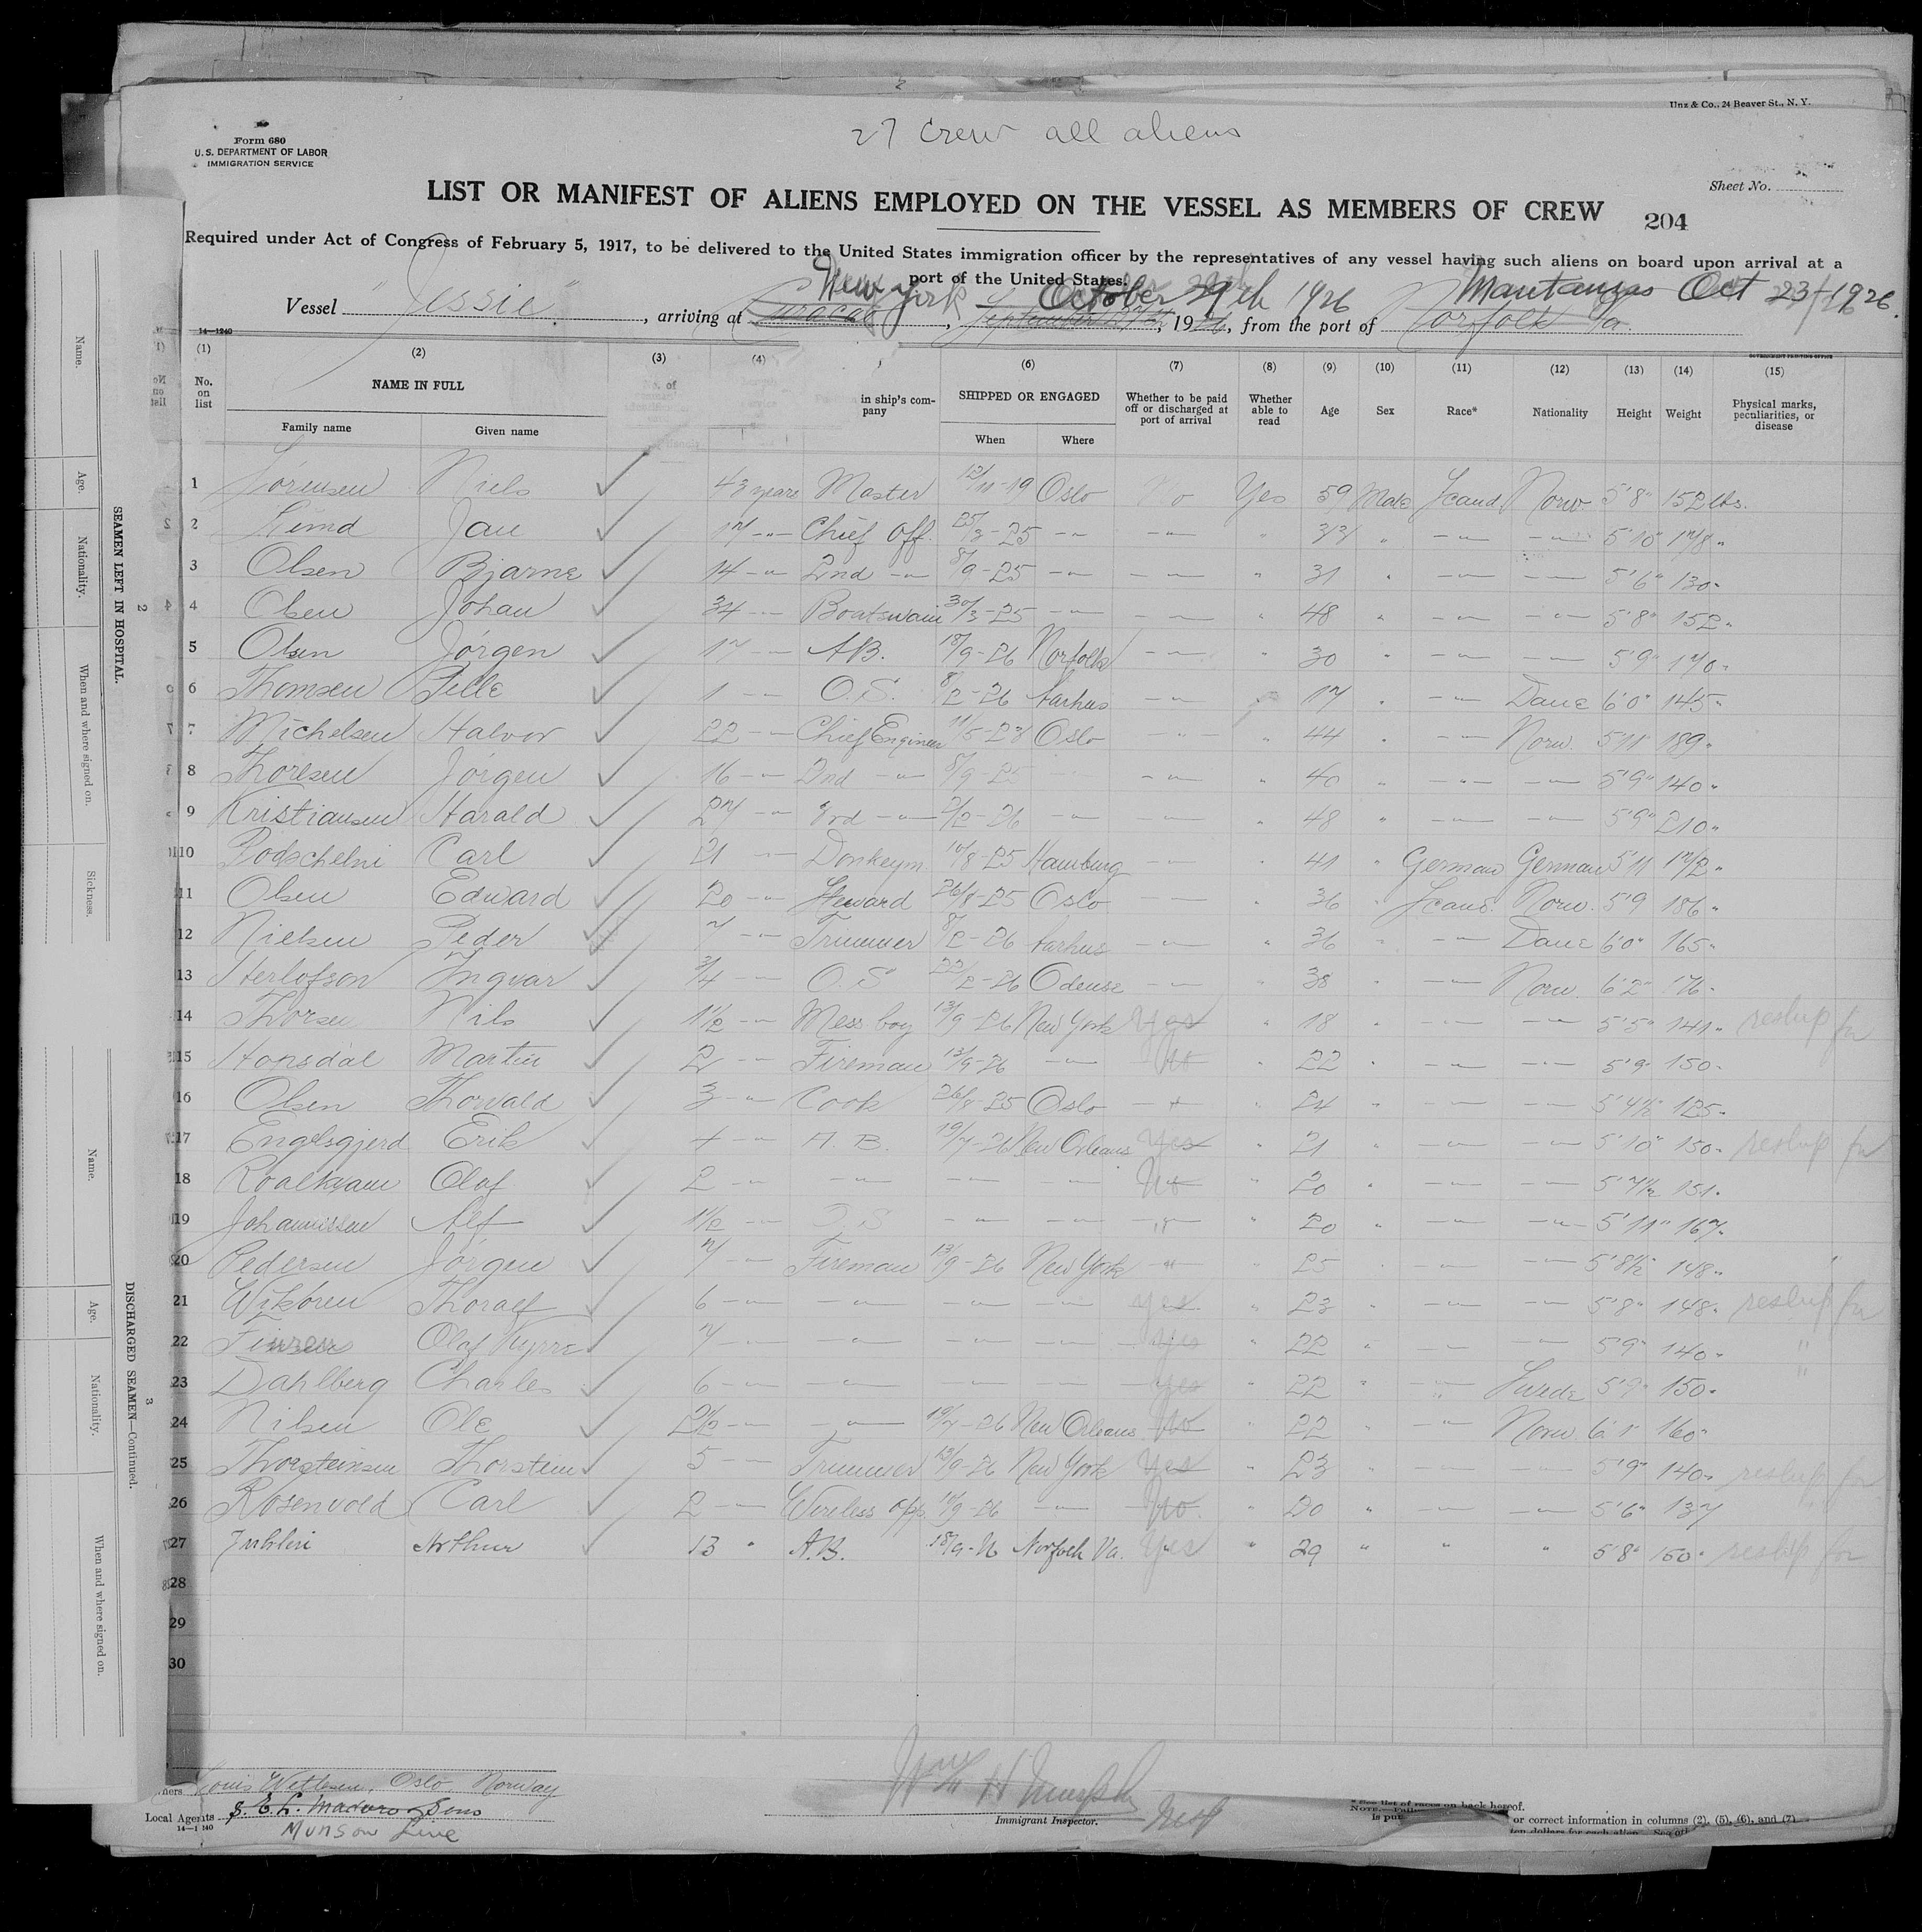 Unz & Co., 24 Beaver St., N. Y.
27 crew all aliens
Form 680
U.S. DEPARTMENT OF LABOR
IMMIGRATION SERVICE
Sheet No.
LIST OR MANIFEST OF ALIENS EMPLOYED ON THE VESSEL AS MEMBERS OF CREW
204
Required under Act of Congress of February 5, 1917, to be delivered to the United States immigration officer by the representatives of any vessel having such aliens on board upon arrival at a
port of the United States.
New York October 29th 1926 Mantanzas Oct 23-1926.
Vessel "Jessie", arriving at Curacao, September 1926, from the port of Norfolk Va.
14-1240
(1) (2) (3) (4) (6) (7) (8) (9) (10) (11) (12) (13) (14) (15)
No. on list
NAME IN FULL
Family name
Given name
in ship's company
SHIPPED OR ENGAGED
When
Where
Whether to be paid off or discharged at port of arrival
Whether able to read
Age
Sex
Race*
Nationality
Height
Weight
Physical marks, peculiarities, or disease
1 Sörensen Niels ✓ 43 years Master 12/11-19 Oslo No Yes 59 Male Scand Norw 5'8" 152 lbs.
2 Lind Jan ✓ 17 -"- Chief Off. 25/3-25 -"- -"- " 33 " -"- -"- 5'10" 178 "
3 Olsen Bjarne ✓ 14 -"- 2nd -"- 8/9-25 -"- -"- " 31 " -"- -"- 5'6" 130 "
4 Olsen Johan ✓ 34 -"- Boatswain 30/3-25 -"- -"- " 48 " -"- -"- 5'8" 152 "
5 Olsen Jörgen ✓ 17 -"- A.B. 18/9-26 Norfolk -"- " 30 " -"- -"- 5'9" 170 "
6 Thomsen Pelle ✓ 1 -"- O.S. 8/2-26 Aarhus -"- " 17 " -"- Dane 6'0" 145 "
7 Michelsen Halvor ✓ 22 -"- Chief Engineer 11/5-23 Oslo -"- " 44 " -"- Norw. 5'11" 189 "
8 Thoresen Jörgen ✓ 16 -"- 2nd -"- 8/9-25 -"- " 40 " -"- -"- 5'9" 140 "
9 Kristiansen Harald ✓ 27 -"- 3rd -"- 2/2-26 -"- -"- " 48 " -"- -"- 5'9" 210 "
10 Carl ✓ 21 -"- Donkeym. 10/8-25 Hamburg -"- " 41 " German German 5'11 172 "
11 Olsen Edward ✓ 20 -"- Steward 26/8-25 Oslo -"- " 36 " Scand. Norw. 5'9 186 "
12 Nielsen Peder ✓ 7 -"- Trimmer 8/2-26 Aarhus -"- " 36 " -"- Dane 6'0" 165 "
13 Herlofson Ingvar ✓ 3/4 -"- O.S 22/2-26 Odense -"- " 38 " -"- Norw. 6'2" 176 "
14 Thorsen Nils ✓ 1 1/2 -"- Mess boy 13/9-26 New York Yes " 18 " -"- -"- 5'5" 141 " reship for
15 Honsdal Martin ✓ 2 -"- Fireman 13/9-26 -"- No " 22 " -"- -"- 5'9" 150 "
16 Olsen Thorvald ✓ 3 -"- Cook 26/8-25 Oslo -"- " 24 " -"- -"- 5'4½ 125 "
17 Engelsgjerd Erik ✓ 4 -"- A.B. 19/7-26 New Orleans Yes " 21 " -"- -"- 5'10" 150 " reship for
18 Roalkvam Olaf ✓ 2 -"- -"- -"- -"- No " 20 " -"- -"- 5'7½ 151 "
19 Johannissen Alf ✓ 1 1/2 -"- O.S -"- -"- -"- " 20 " -"- -"- 5'11" 167 "
20 Pedersen Jörgen ✓ 7 -"- Fireman 13/9-26 New York -"- " 25 " -"- -"- 5'8½ 148 "
21 Wikören Thoralf ✓ 6 -"- -"- -"- -"- yes " 23 " -"- -"- 5'8" 148 " reship for
22 Olaf Kyrre ✓ 7 -"- -"- -"- -"- yes " 22 " -"- 5'9" 140 " "
23 Dahlberg Charles ✓ 6 -"- -"- -"- -"- yes " 22 " -"- Swede 5'9" 150 " "
24 Nilsen Ole ✓ 2 1/2 -"- -"- 19/7-26 New Orleans No " 22 " -"- Norw. 6'1" 160 "
25 Thorsteinsen Thorstein ✓ 5 -"- Trimmer 13/9-26 New York Yes " 23 " -"- -"- 5'9" 140 " reship for
26 Rosenvold Carl ✓ 2 -"- Wireless opr. 14/9-26 -"- No " 20 " -"- -"- 5'6" 137
27 Juhlin Arthur ✓ 13 " A.B. 18/9-26 Norfolk Va. Yes " 29 " " " 5'8" 150 " reship for
28
29
30
Louis Wetlesen, Oslo, Norway
Local Agents S. E. L. Maduro & Sons
14-1240
Munson Line
Wm H Murph
Immigrant Inspector.
* See list of races on back hereof.
or correct information in columns (2), (5), (6), and (7)
ten dollars for each alien.
SEAMEN LEFT IN HOSPITAL.
2
Name.
Age.
Nationality.
When and where signed on.
Sickness.
DISCHARGED SEAMEN—Continued.
3
Name.
Age.
Nationality.
When and where signed on.